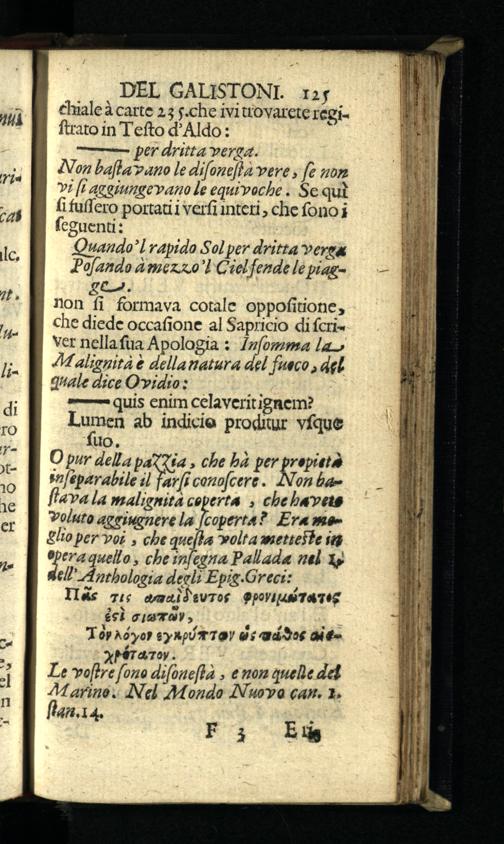 DEL GALISTONI. 125
chiale à carte 235. che ivi trovarete regi-
strato in Testo d'Aldo:
—— per dritta verga.
Non bastavano le disonesta vere, se non
vi si aggiungevano le equivoche. Se quì
si fussero portati i versi interi, che sono i
seguenti:
Quando'l rapido Sol per dritta verga
Posando à mezzo'l Ciel fende le piag-
ge.
non si formava cotale oppositione,
che diede occasione al Sapricio di scri-
ver nella sua Apologia: Insomma la
Malignità è della natura del fuoco, del
quale dice Ovidio:
—— quis enim celaverit ignem?
Lumen ab indicio proditur vsque
suo.
O pur della pazzia, che hà per propietà
inseparabile il farsi conoscere. Non ba-
stava la malignità coperta, che havete
voluto aggiugnere la scoperta? Era me-
glio per voi, che questa volta metteste in
opera quello, che insegna Pallada nel 1.
dell'Anthologia degli Epig. Greci:
Πᾶς τις απαίδευτος φρονιμώτατος
ἐςὶ σιωπῶν,
Τὸν λόγον εγκρύπτων ὡς πάθος αἰσ-
χρότατον.
Le vostre sono disonestà, e non quelle del
Marino. Nel Mondo Nuovo can. 1.
stan. 14.
F 3